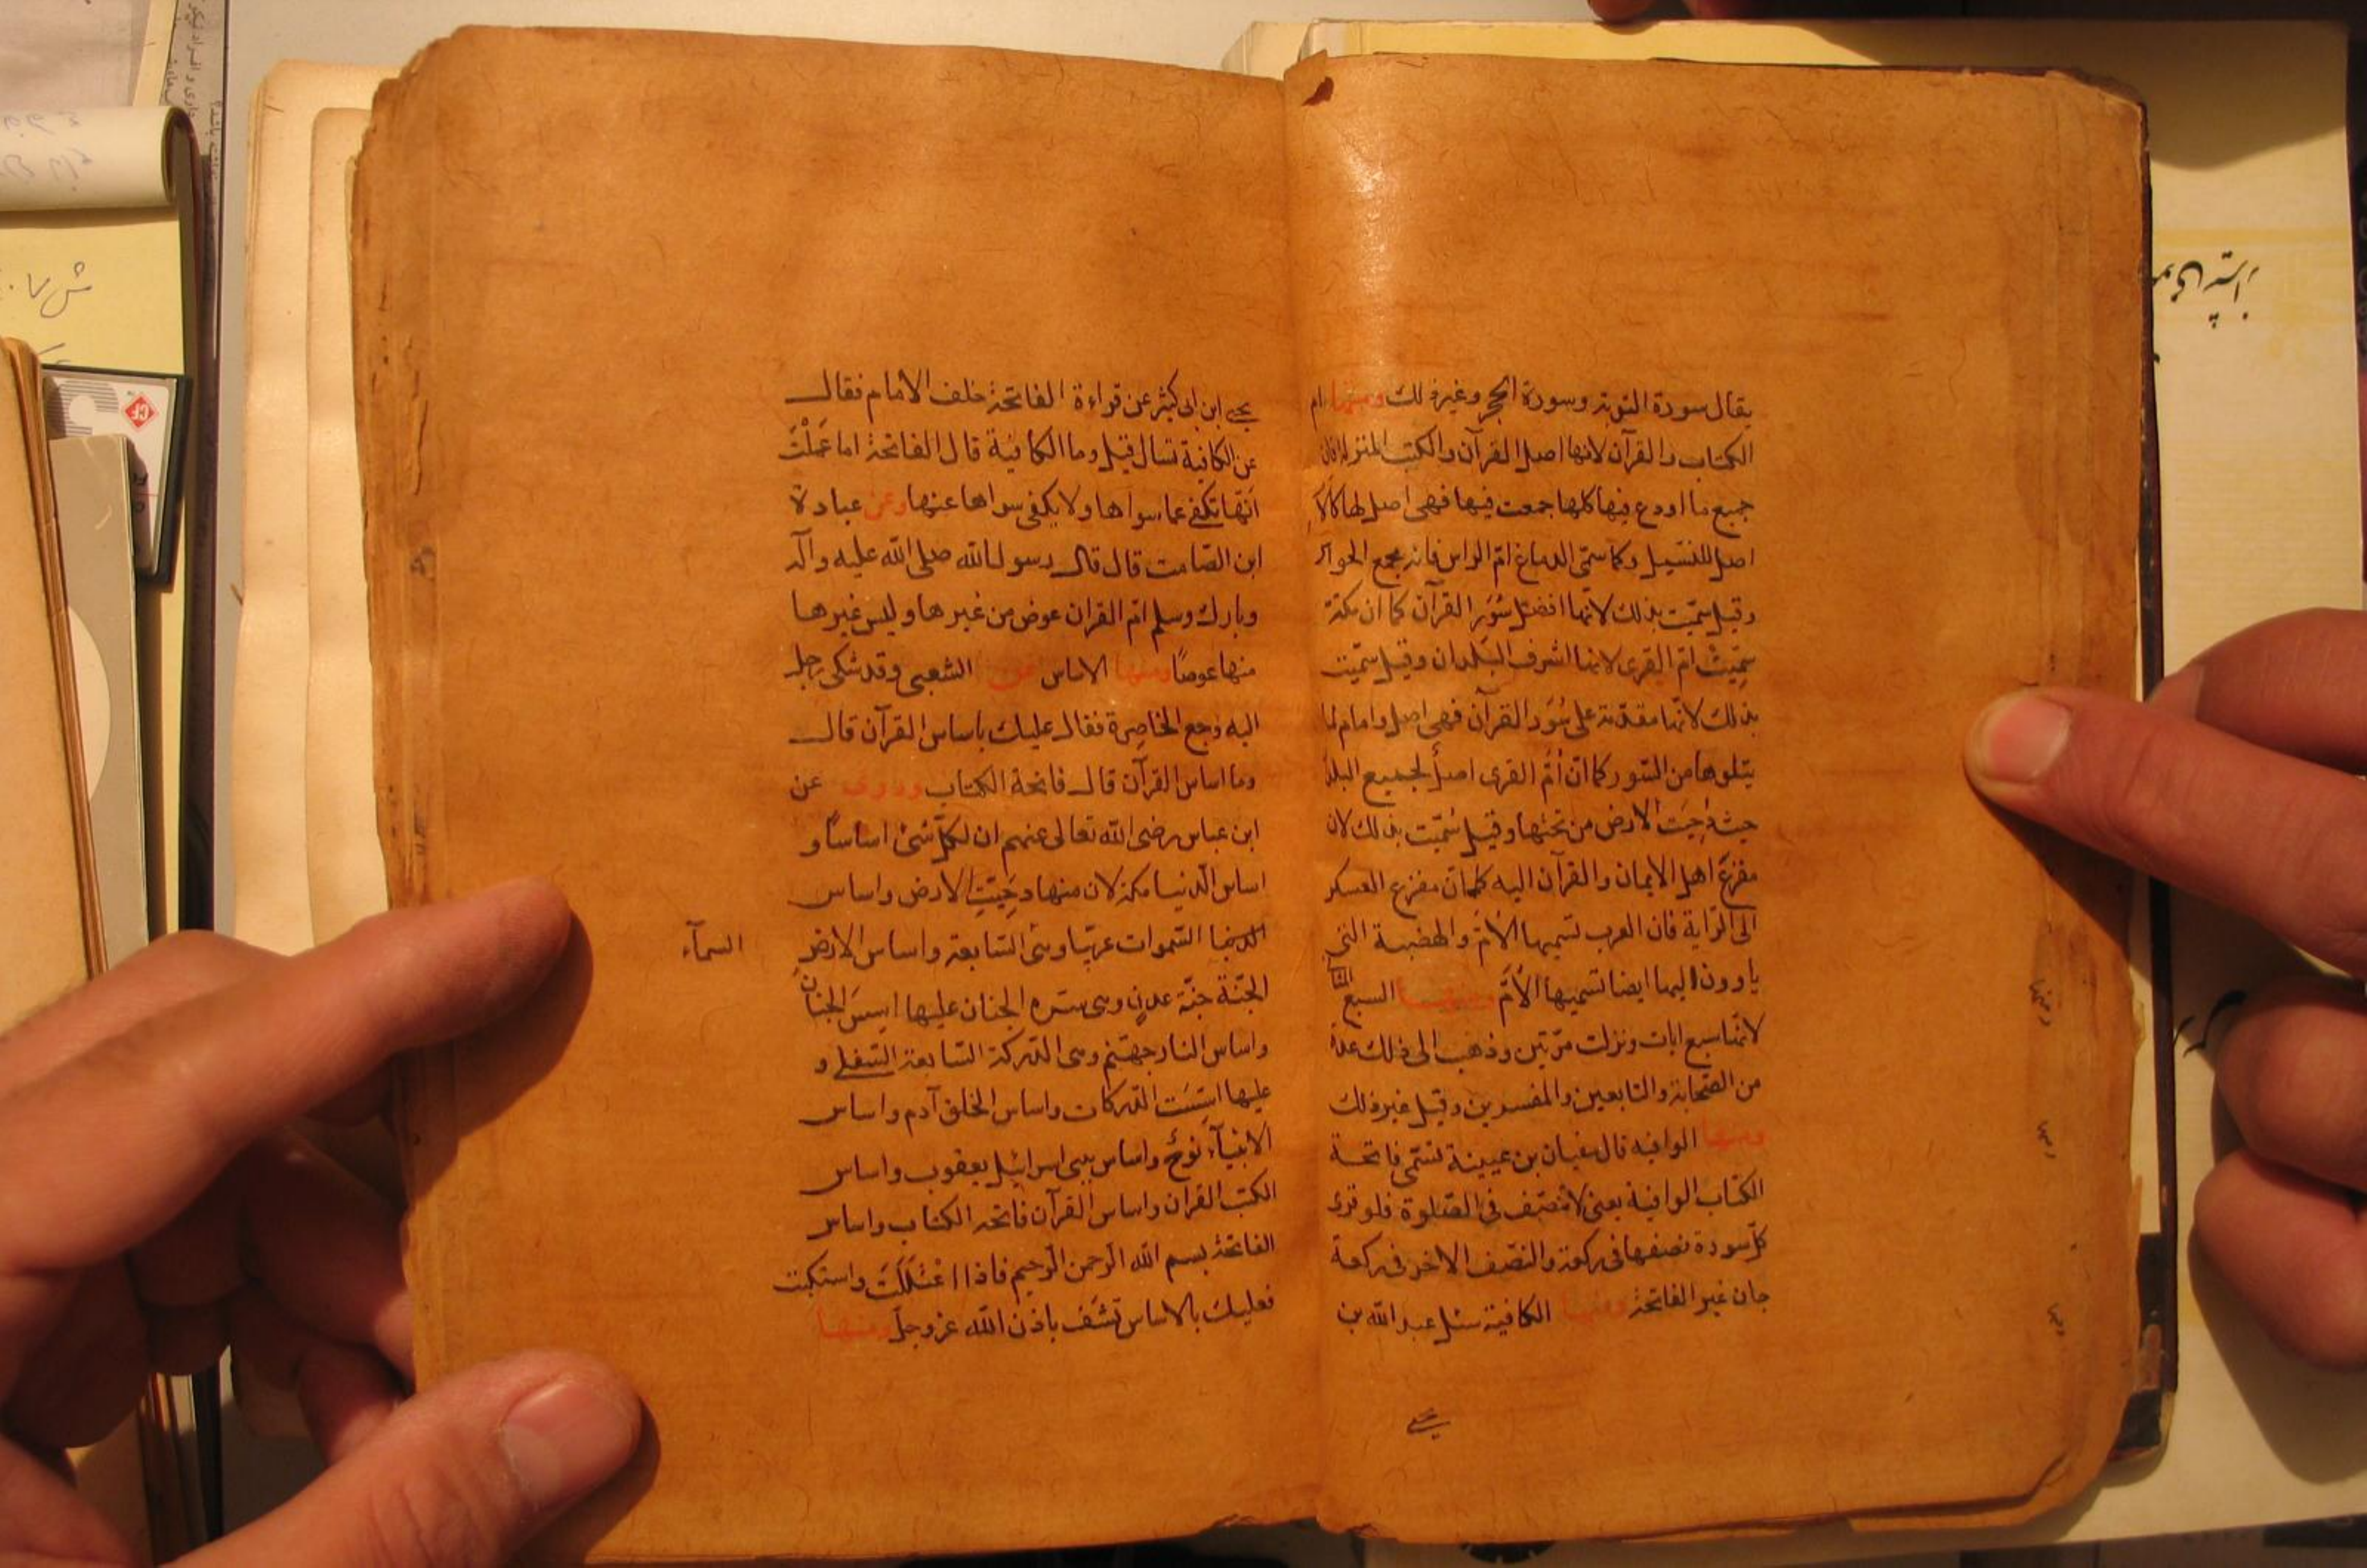 يقال سورة التوبة وسورة الحجر وغير ذلك ومنها ام
الكتاب والقرآن لانها اصل القرآن والكتب المنزلة فان
جميع ما اودع فيها كلها جمعت فيها فهي اصل لها كالام
اصل للنسل وكما سمّي الدماغ امّ الراس فانه مجمع الحواس
وقيل سمّيت بذلك لانها افضل سُوَر القرآن كما ان مكة
سمِّيتْ امّ القرى لانها اشرف البُلدان وقيل سمّيت
بذلك لانّها مقدّمة على سُوَر القرآن فهي اصل وامام لما
يتلوها من السّور كما انّ اُمّ القرى اصلٌ لجميع البلد
حيث دُحِيَت الارض من تحتها وقيل سُمّيت بذلك لان
مفزعَ اهل الايمان والقرآن اليه كما انّ مفزع العسكر
الى الرّاية فان العرب تسميها الاُمّ والهضبة التي
ياوون اليها ايضا تسميها الاُمّ ومنها السبع المثا
لانّها سبع ايات ونزلت مرّتين وذهب الى ذلك عدة
من الصّحابة والتابعين والمفسرين وقيل غير ذلك
ومنها الوافية قال سفيان بن عيينة تسمّى فاتحة
الكتاب الوافية يعنى لا تنصّف في الصّلوة فلو قرئ
كلّ سورة نصفها في ركعة والنصّف الاخر في ركعة
جاز غير الفاتحة ومنها الكافية سئل عبد الله بن
يحيى
ومنها
يحيى ابن ابى كثير عن قراءة الفاتحة خلف الامام فقال
عن الكافية تسال قيل وما الكافية قال الفاتحة اما عَمِلْتَ
انّها تكفي عما سواها ولا يكفي سواها عنها وعن عبادة
ابن الصّامت قال قال رسول الله صلى الله عليه وآله
وبارك وسلم امّ القران عوض من غيرها وليس غيرها
منها عوضًا ومنها الاساس عن الشعبي وقد شكى رجل
اليه وجع الخاصِرة فقال عليك باساس القرآن قال
وما اساس القرآن قال فاتحة الكتاب وروى عن
ابن عباس رضى الله تعالى عنهم ان لكلّ شئ اساسًا و
اساس الدّنيا مكة لان منها دحِيَتِ الارض واساس
السموات عريّبا وهى السّابعة واساس الارض
السمآء
الجنّة جنّة عدنٍ وهى سرة الجنان عليها اسسَ الجنان
واساس النار جهنّم وهى الدّركة السّابعة السّفلى و
عليها اسّسَت الدّركات واساس الخلق آدم واساس
الانبيآء نوحٌ واساس بنى اسرائيل يعقوب واساس
الكتب القران واساس القرآن فاتحة الكتاب واساس
الفاتحة بسم الله الرّحمن الرّحيم فاذا اعْتَلَلَتَ واستكيت
فعليك بالاساس تشَف باذن الله عز وجلّ ومنها